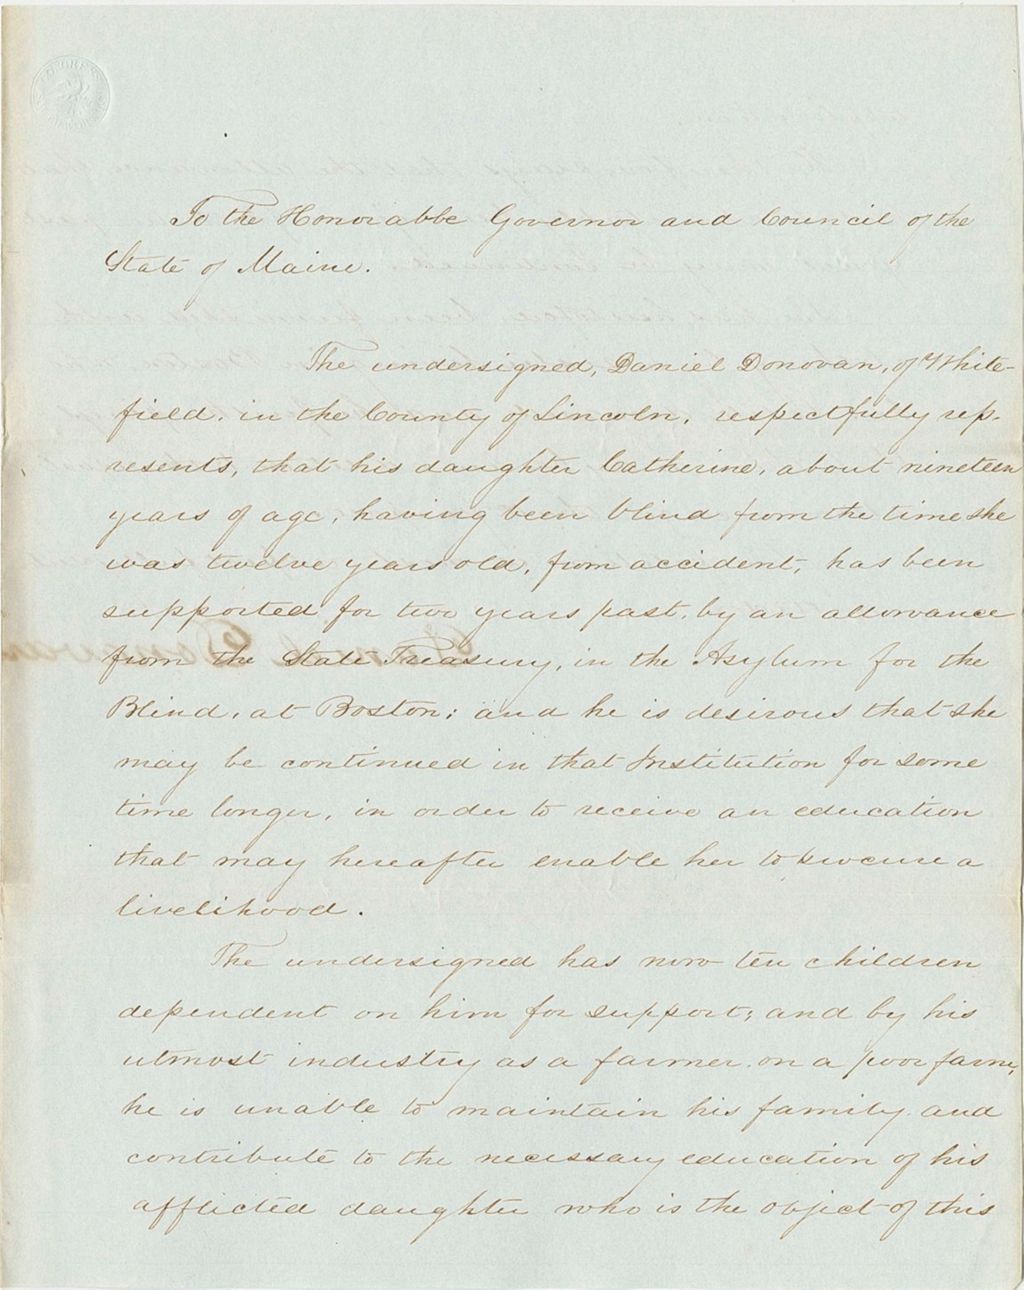 To the Honorabbe Governor and Council of the
State of Maine.
The undersigned, Daniel Donovan, of White-
field, in the County of Lincoln, respectfully rep-
resents, that his daughter Catherine, about nineteen
years of age, having been blind from the time she
was twelve years old, from accident, has been
supported for two years past, by an allowance
from the State Treasury, in the Asylum for the
Blind, at Boston; and he is desirous that she
may be continued in that Institution for some
time longer, in order to receive an education
that may hereafter enable her to procure a
livelihood.
The undersigned has now ten children
dependent on him for support; and by his
utmost industry as a farmer on a poor farm,
he is unable to maintain his family and
contribute to the necessary education of his
afflicted daughter who is the object of this